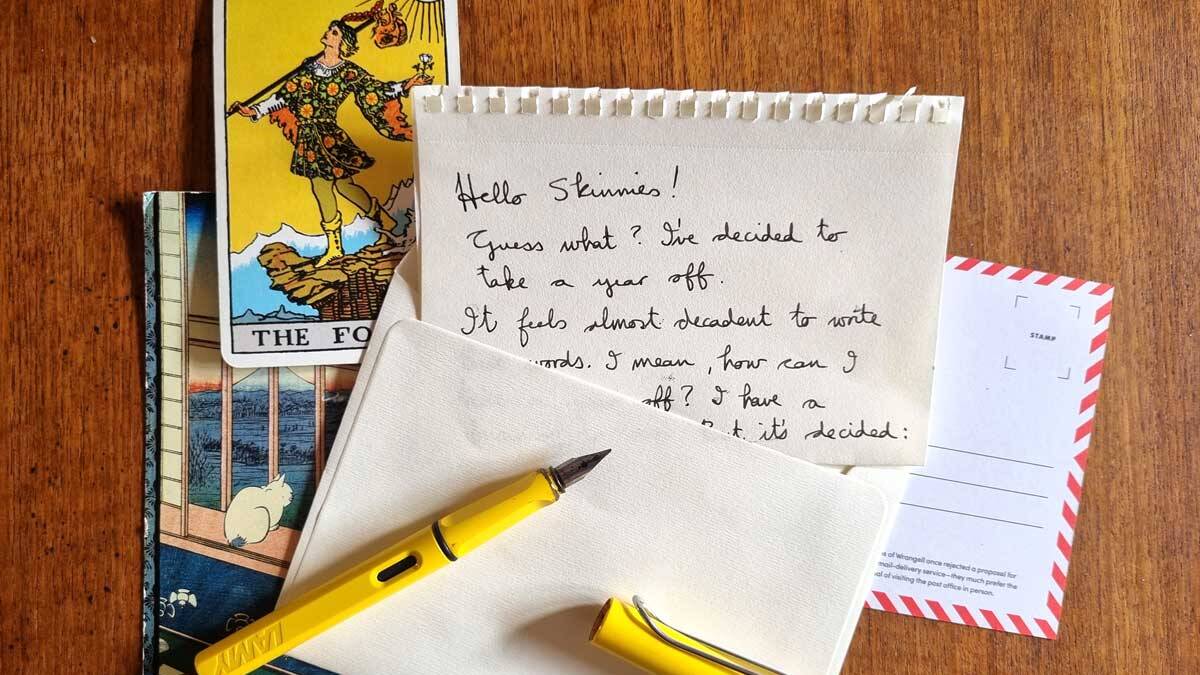 THE FO
Hello Skinnies!
Guess what? I've decided to
take a year off.
It feels almost decadent to write
words. I mean, how can I
off? I have a
But it's decided:
STAMP
of Wrangell once rejected a proposal for
mail-delivery service—they much prefer the
of visiting the post office in person.
LAMY